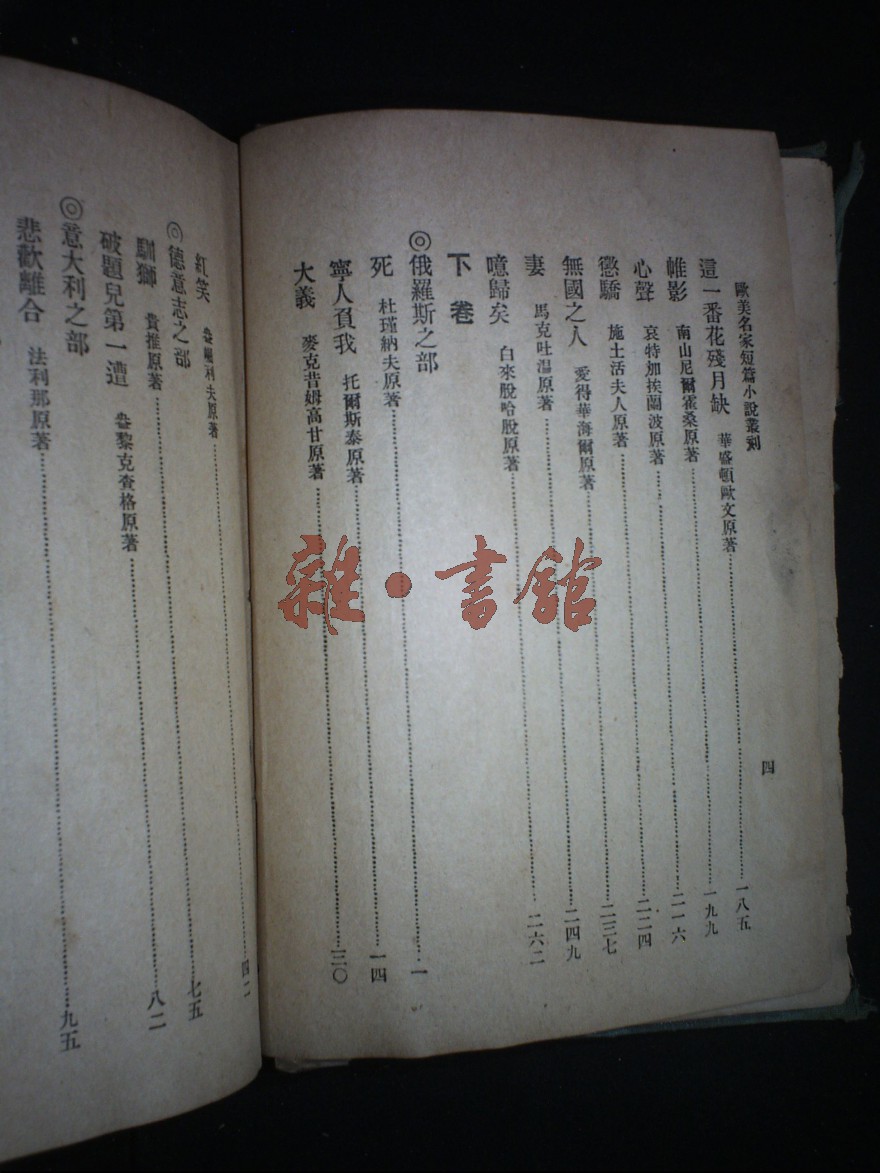 歐美名家短篇小說叢刻 四
這一番花殘月缺 華盛頓歐文原著……一八五
帷影 南山尼爾霍桑原著……一九九
心聲 哀特加挨蘭波原著……二一六
懲驕 施土活夫人原著……二二四
無國之人 愛得華海爾原著……二三七
妻 馬克吐温原著……二四九
噫歸矣 白來脫哈脫原著……二六二
下卷
◎俄羅斯之部
死 杜瑾納夫原著……一
寧人負我 托爾斯泰原著……一四
大義 麥克昔姆高甘原著……三〇
紅笑 盎崛利夫原著……四二
◎德意志之部
馴獅 貴推原著……七五
破題兒第一遭 盎黎克查格原著……八二
◎意大利之部
悲歡離合 法利那原著……九五
雜·書館